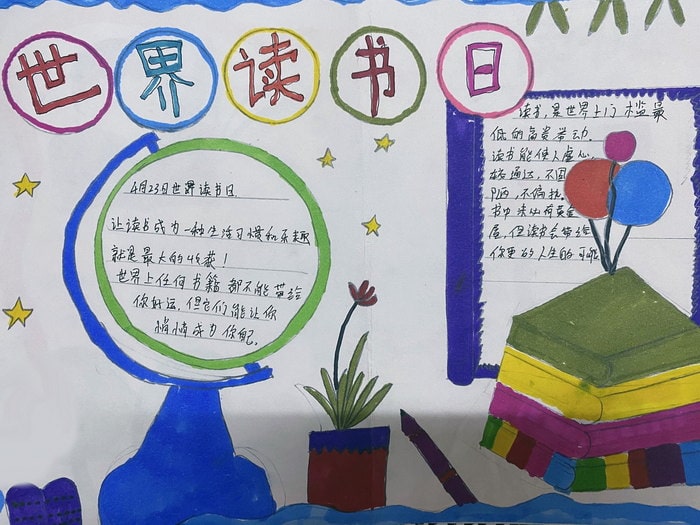 世界读书日
4月23日世界读书日
让读书成为一种生活习惯和乐趣
就是最大的收获！
世界上任何书籍都不能带给
你好运，但它们能让你
悄悄成为你自己。
读书，是世界上门槛最
低的高贵举动。
读书能使人虚心，
通达，不固
陋，不偏执。
书中未必有黄金
屋，但读书会给
你更的人生的可能